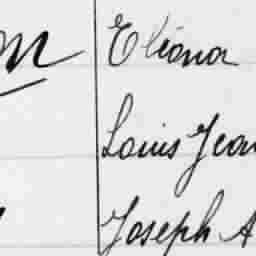 Eléonor
Louis Jean
Joseph A